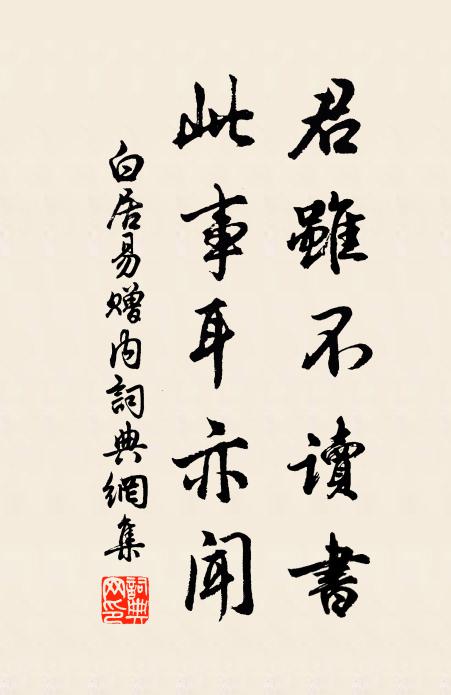 君雖不讀書
此事耳亦聞
白居易贈內詞典網集
詞典
網印